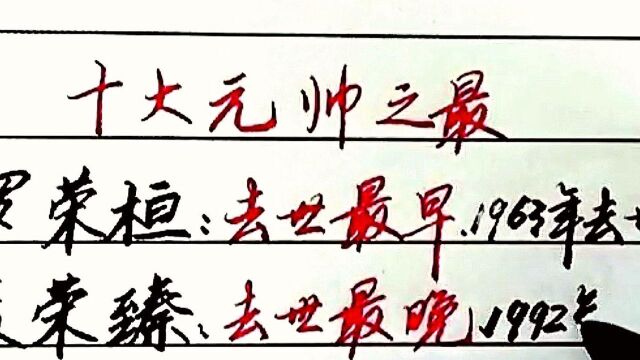 十大元帅之最
罗荣桓:去世最早.1963年去世
聂荣臻:去世最晚,1992年